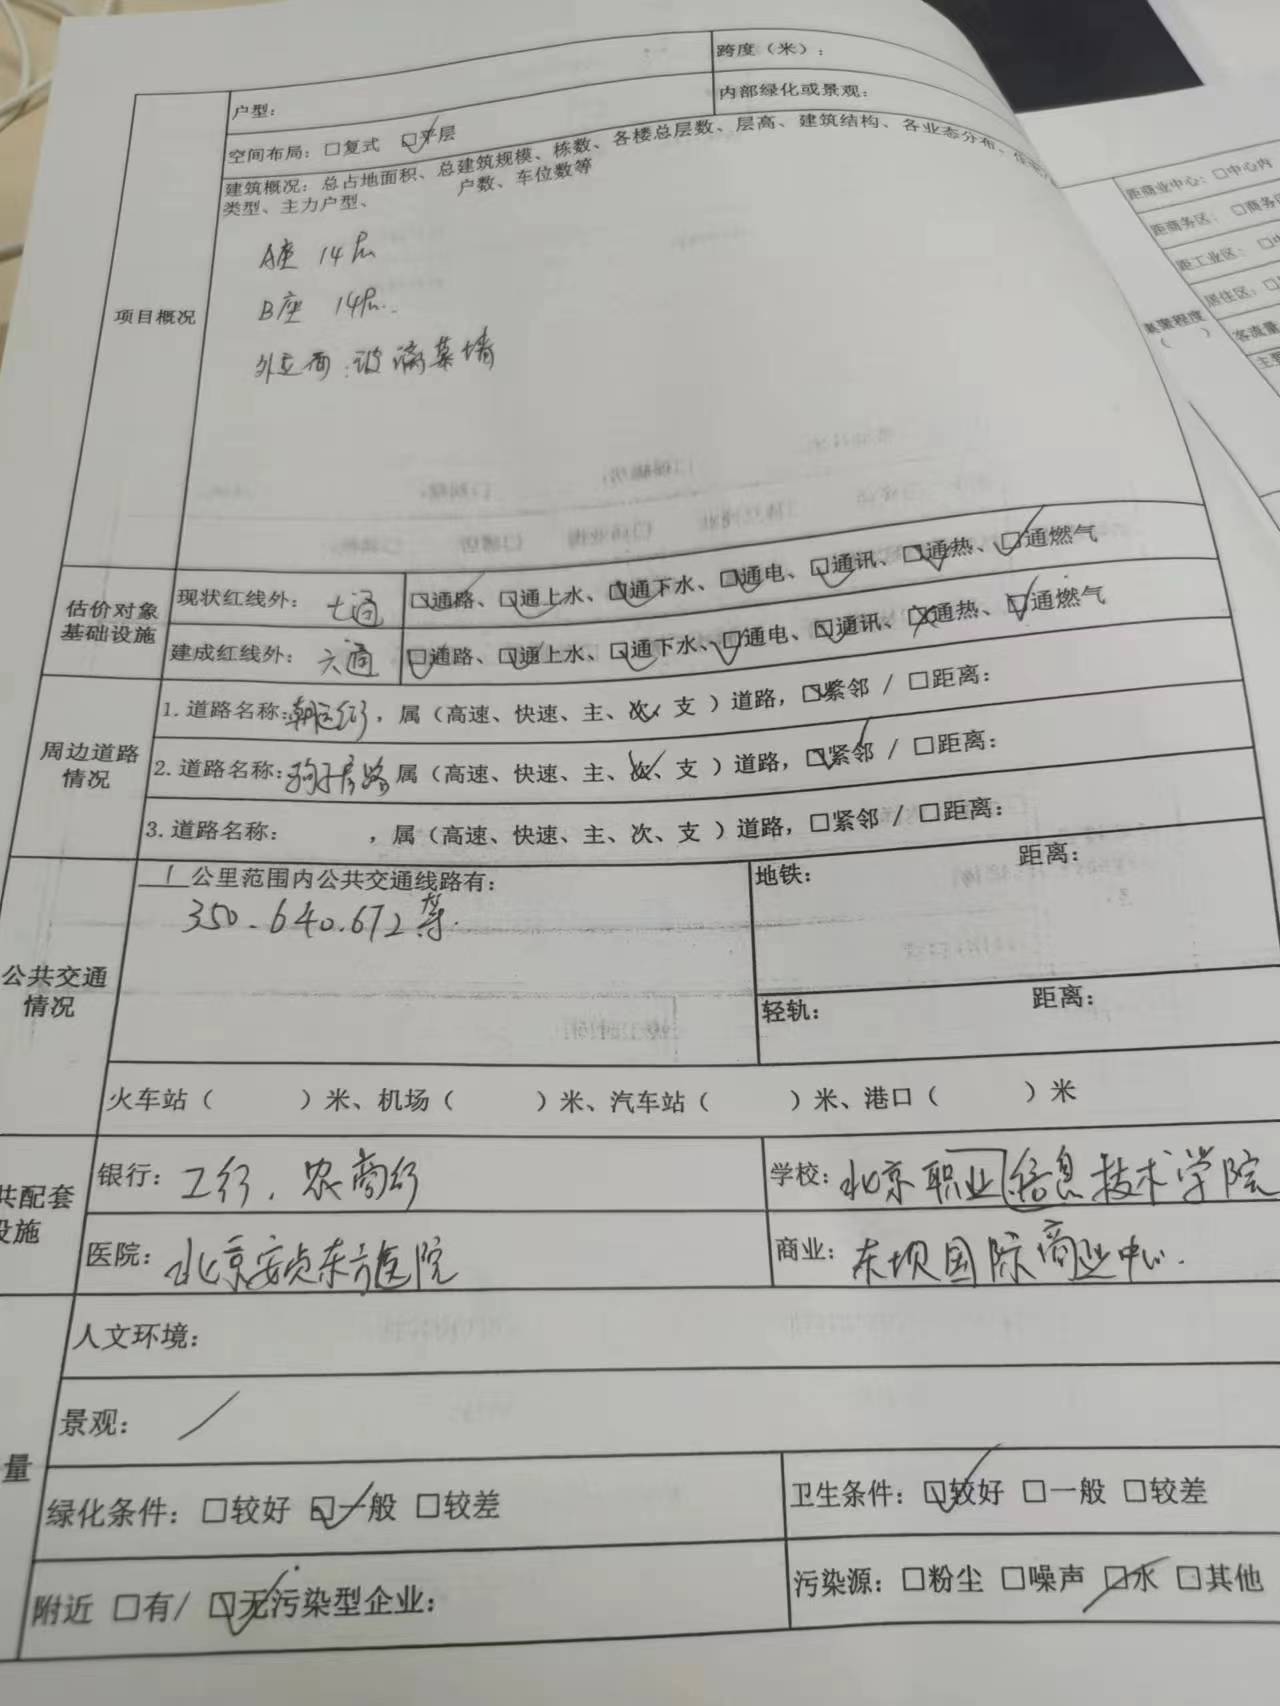 跨度（米）：
户型：
内部绿化或景观：
空间布局：□复式 ☑平层
项目概况
建筑概况：总占地面积、总建筑规模、栋数、各楼总层数、层高、建筑结构、各业态分布、
类型、主力户型、 户数、车位数等
A座 14层
B座 14层
外立面：玻璃幕墙
估价对象
基础设施
现状红线外：七通 ☑通路、☑通上水、☑通下水、☑通电、☑通讯、☑通热、☑通燃气
建成红线外：六通 ☑通路、☑通上水、☑通下水、☑通电、☑通讯、☒通热、☑通燃气
周边道路
情况
1.道路名称： ，属（高速、快速、主、次、支 ）道路，☑紧邻 / □距离：
2.道路名称：驹子房路 属（高速、快速、主、次、支 ）道路，☑紧邻 / □距离：
3.道路名称： ，属（高速、快速、主、次、支 ）道路，□紧邻 / □距离：
公共交通
情况
1 公里范围内公共交通线路有：
350.640.672等.
地铁： 距离：
轻轨： 距离：
火车站（ ）米、机场（ ）米、汽车站（ ）米、港口（ ）米
共配套
设施
银行：工行、农商行
学校：北京职业信息技术学院
医院：北京安贞东方医院
商业：东坝国际商业中心.
量
人文环境：
景观： /
绿化条件：□较好 ☑一般 □较差
卫生条件：☑较好 □一般 □较差
附近 □有/ ☑无污染型企业：
污染源：□粉尘 □噪声 □水 □其他
距商业中心：□中心内
距商务区： □商务区
距工业区： □
居住区：□
集聚程度
（ ）
客流量
主要